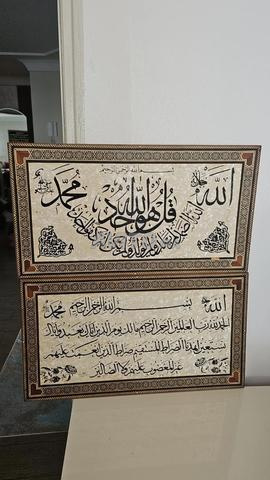 بسم الله الرحمن الرحيم
الله جل جلاله
قل هو الله احد
محمد
الله الصمد لم يلد ولم يولد ولم يكن له كفوا احد
الله بسم الله الرحمن الرحيم محمد
الحمد لله رب العالمين الرحمن الرحيم مالك يوم الدين اياك نعبد واياك
نستعين اهدنا الصراط المستقيم صراط الذين انعمت عليهم
غير المغضوب عليهم ولا الضالين